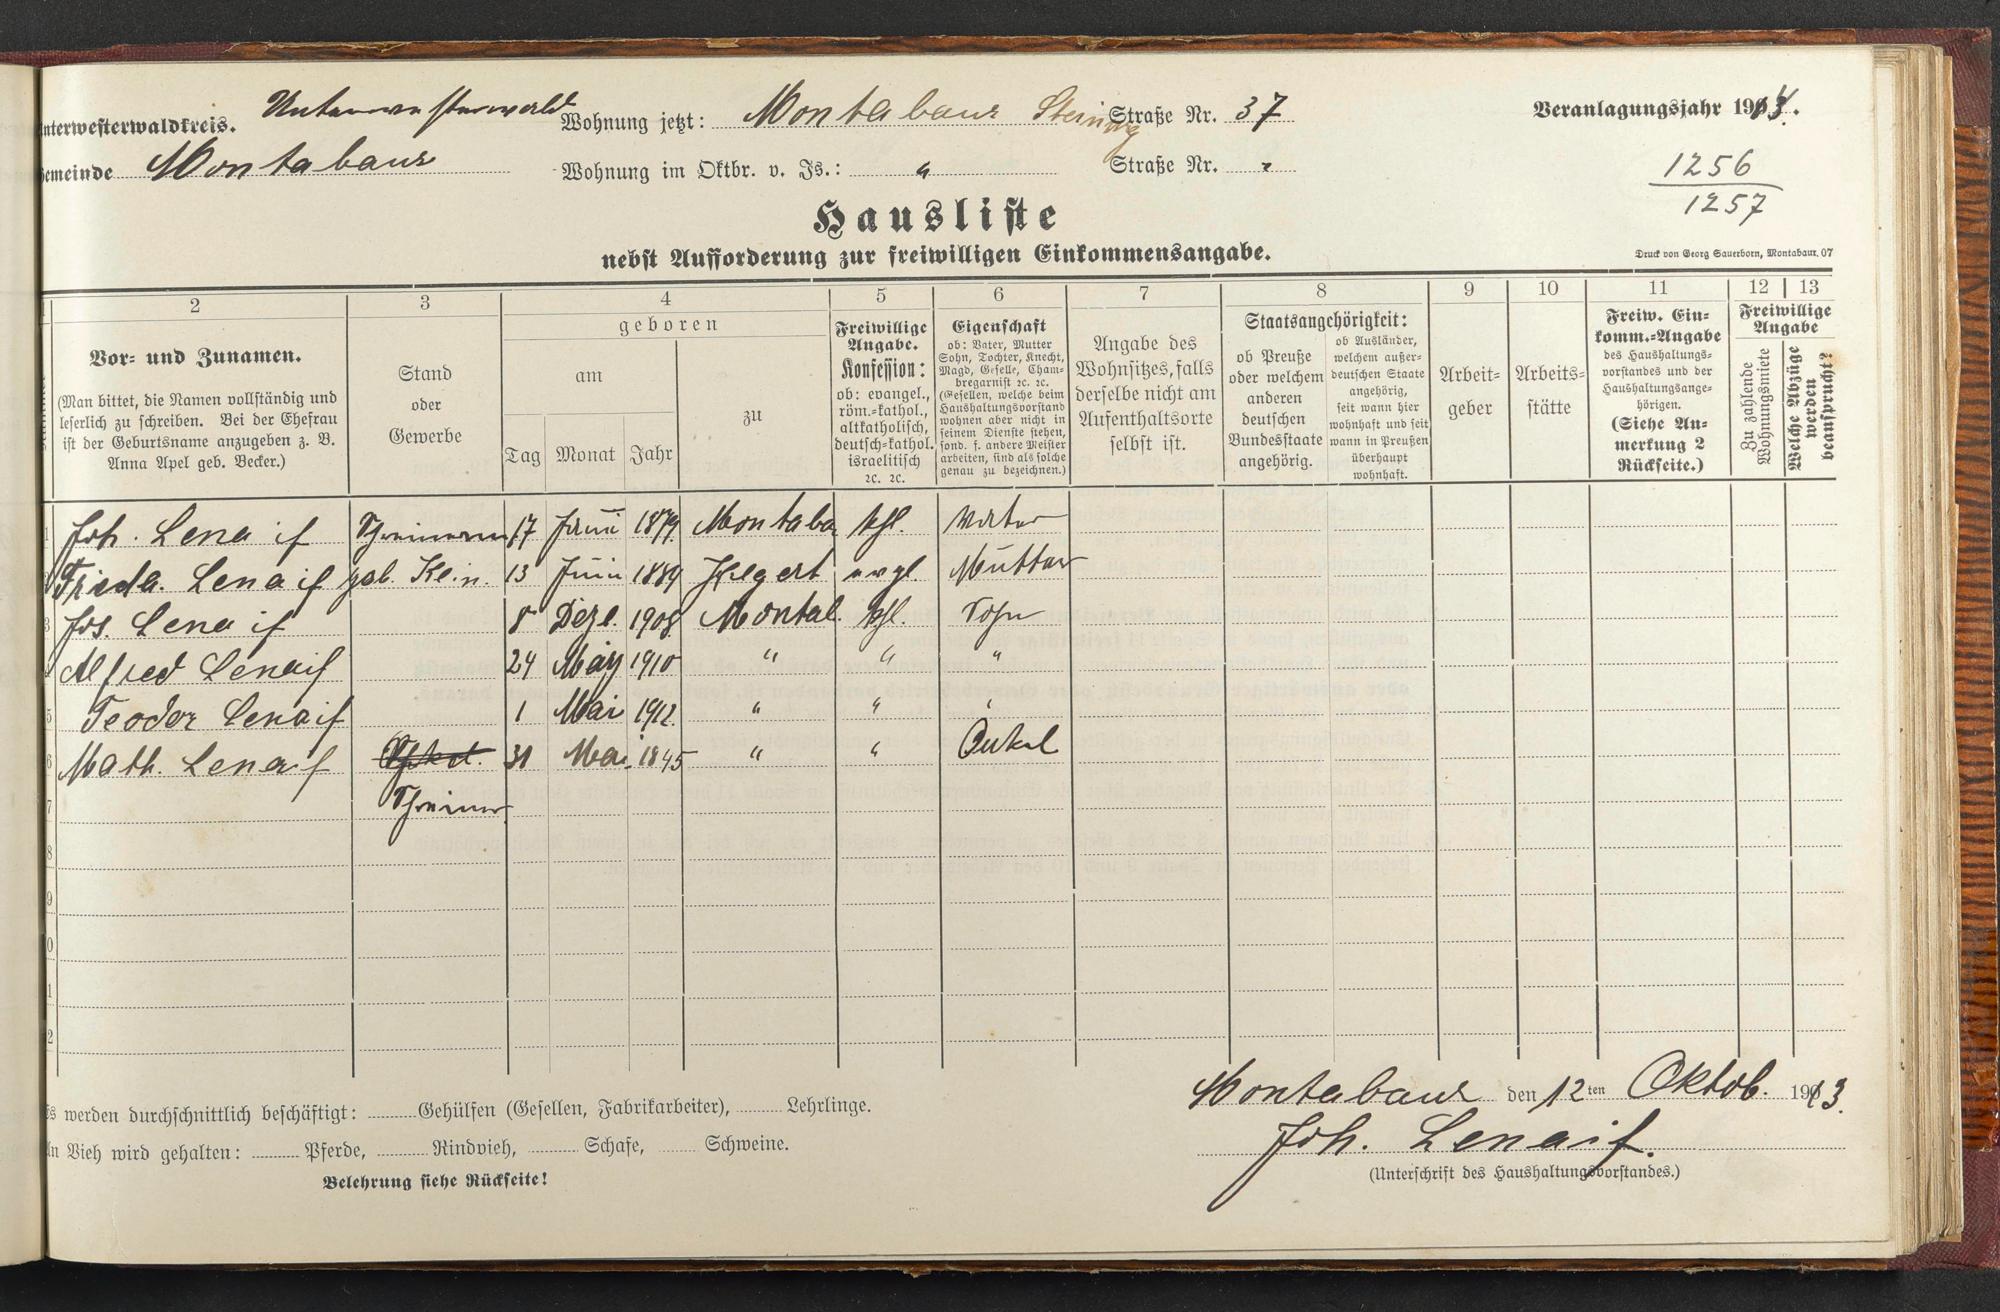 Unterwesterwaldkreis. Unterwesterwald Wohnung jetzt: Montabaur Steinweg Straße Nr. 37 Veranlagungsjahr 1914.
Gemeinde Montabaur Wohnung im Oktbr. v. Js.: " Straße Nr. "
1256
1257
Hausliste
nebst Aufforderung zur freiwilligen Einkommensangabe.
Druck von Georg Sauerborn, Montabaur. 07
2 3 4 5 6 7 8 9 10 11 12 13
Vor- und Zunamen.
(Man bittet, die Namen vollständig und
leserlich zu schreiben. Bei der Ehefrau
ist der Geburtsname anzugeben z. B.
Anna Apel geb. Becker.)
Stand
oder
Gewerbe
geboren
am
Tag Monat Jahr
zu
Freiwillige
Angabe.
Konfession:
ob: evangel.,
röm.-kathol.,
altkatholisch,
deutsch-kathol.
israelitisch
ꝛc. ꝛc.
Eigenschaft
ob: Vater, Mutter
Sohn, Tochter, Knecht,
Magd, Geselle, Cham-
bregarnist ꝛc. ꝛc.
(Gesellen, welche beim
Haushaltungsvorstand
wohnen aber nicht in
seinem Dienste stehen,
sond. f. andere Meister
arbeiten, sind als solche
genau zu bezeichnen.)
Angabe des
Wohnsitzes, falls
derselbe nicht am
Aufenthaltsorte
selbst ist.
Staatsangehörigkeit:
ob Preuße
oder welchem
anderen
deutschen
Bundesstaate
angehörig.
ob Ausländer,
welchem außer-
deutschen Staate
angehörig,
seit wann hier
wohnhaft und seit
wann in Preußen
überhaupt
wohnhaft.
Arbeit-
geber
Arbeits-
stätte
Freiw. Ein-
komm.-Angabe
des Haushaltungs-
vorstandes und der
Haushaltungsange-
hörigen.
(Siehe An-
merkung 2
Rückseite.)
Freiwillige
Angabe
Zu zahlende
Wohnungsmiete
Welche Abzüge
werden
beansprucht?
1 Joh. Lenaif Schreinerm 17 Juni 1879 Montaba kth. Vater
Frieda. Lenaif geb. Klein. 13 Juni 1889 evgl. Mutter
3 Jos. Lenaif 8 Deze. 1908 Montab. kth. Sohn
Alfred Lenaif 24 März 1910 " " "
5 Teodor Lenaif 1 Mai 1912. " " "
6 Math. Lenaif 31 Mai 1845 " " Onkel
7 Schreiner
8
9
0
1
2
Es werden durchschnittlich beschäftigt: Gehülfen (Gesellen, Fabrikarbeiter), Lehrlinge.
An Vieh wird gehalten: Pferde, Rindvieh, Schafe, Schweine.
Belehrung siehe Rückseite!
Montabaur den 12ten Oktob. 1913.
Joh. Lenaif.
(Unterschrift des Haushaltungsvorstandes.)